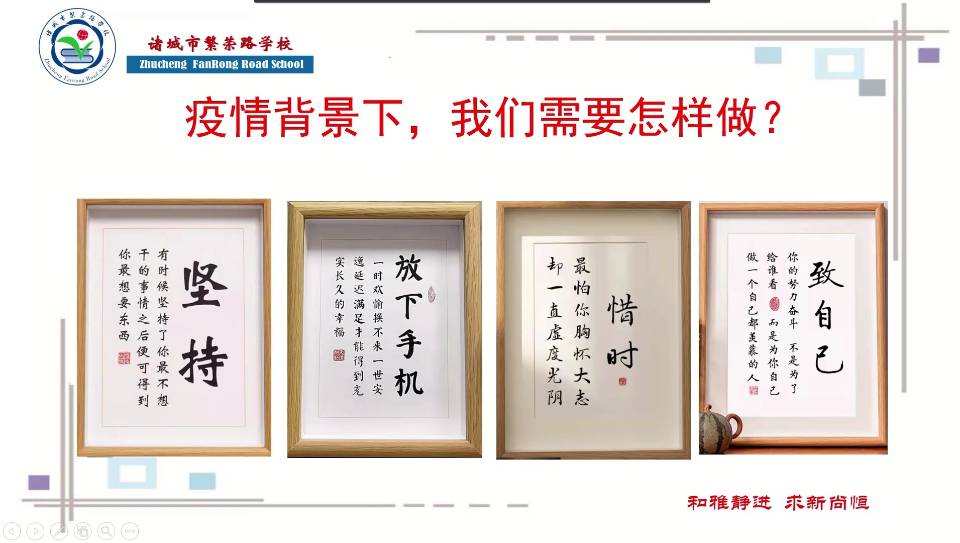 诸城市繁荣路学校
Zhucheng FanRong Road School
疫情背景下，我们需要怎样做？
坚持
有时候坚持了你最不想
干的事情之后便可得到
你最想要东西
放下手机
一时欢愉换不来一世安
逸延迟满足才能得到充
实长久的幸福
惜时
最怕你胸怀大志
却一直虚度光阴
致自己
你的努力奋斗 不是为了
给谁看 而是为你自己
做一个自己都羡慕的人
和雅静进 求新尚恒